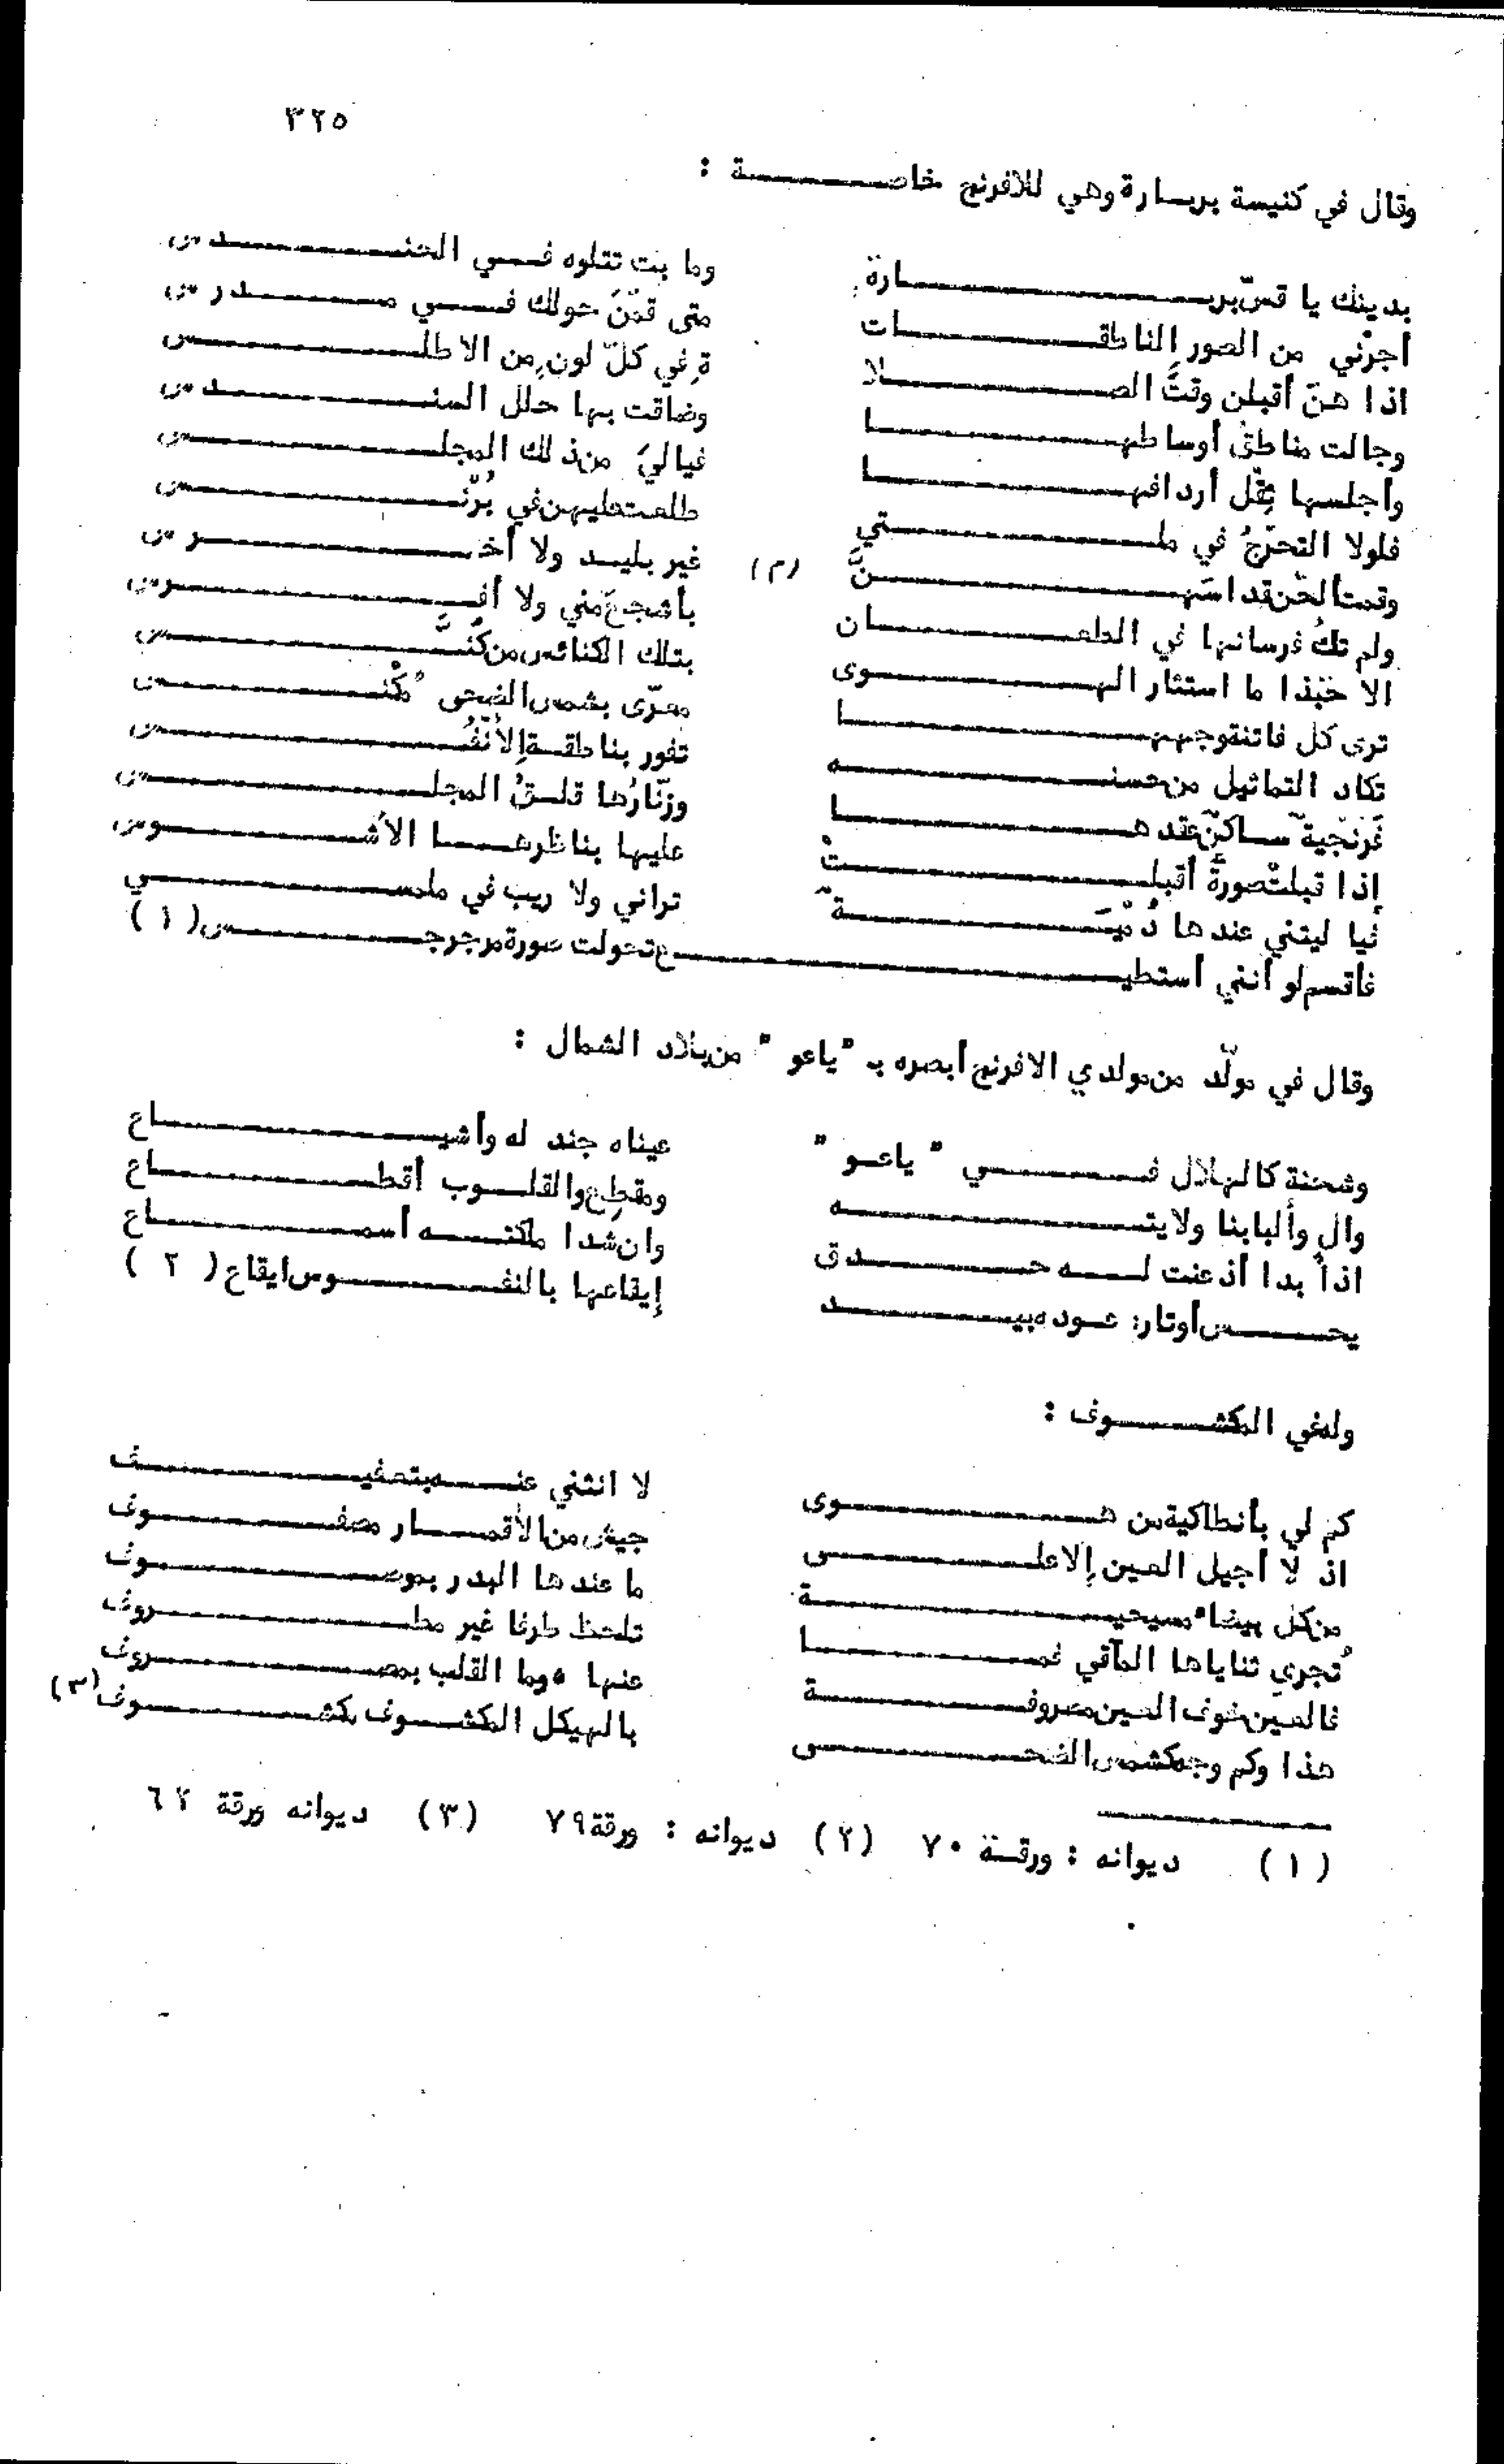 ٣٢٥
وقال في كنيسة بربسارة وهي للافرنج خاصة :
بدينك يا قسّ بربسارة وما بت تتلوه في الحندس
أجرْني من الصور الناطقات متى قمْنَ حولك في مدرس
اذا هنّ أقبلن وقتَ الصلا ةِ في كلّ لونٍ من الاطلس
وجالت مناطقُ أوساطها وضاقت بها حلل السندس
وأجلسها ثِقْل أردافها فيالي من ذلك المجلس
فلولا التحرّجُ في ملتي طلعت عليهن في بُرْنس
وقمت ألحّن قد اسَهنَّ (م) غير بليد ولا أخرس
ولم تكُ فرسانها في الطعان بأشجعَ مني ولا أفرس
الا حبّذا ما استثار الهوى بتلك الكنائس من كُنَّس
ترى كل فاتنة وجهها معرّى بشمس الضحى مكْنس
تكاد التماثيل من حسنه تفور بناطقة الأنْفُس
فَرنْجيةٌ ساكنٌ عقدها وزنّارُها قلقُ المجلس
إذا قبلتْ صورةً أقبلتْ عليها بناظرها الأشوس
فيا ليتني عندها دُمْيَةٌ تراني ولا ريب في ملمسي
فأقسم لو أنني أستطيع تحولت صورة مرجرجس (١)
وقال في مولّد من مولدي الافرنج أبصره بـ "ياعو" من بلاد الشمال :
وشحنة كالهلال في "ياعو" عيناه جند له وأشياع
والٍ وألبابنا ولايته ومقطِع والقلوب أقطاع
اذا بدا أذعنت له حدق وان شدا ملكته أسماع
يحس أوتار عوده بيد إيقاعها بالنفوس ايقاع (٢)
وله في المكشوف :
كم لي بأنطاكية من هوى لا انثني عنه بتعفيف
اذ لا أجيل العين إلا على جيش من الأقمار مصفوف
من كل بيضاء مسيحية ما عندها البدر بموصوف
تُجري ثناياها المآقي فما تلحظ طرفا غير مطروف
فالعين خوف العين مصروفة عنها ، وما القلب بمصروف
هذا وكم وجه كشمس الضحى بالهيكل المكشوف مكشوف (٣)
(١) ديوانه : ورقة ٧٠ (٢) ديوانه : ورقة ٧٩ (٣) ديوانه ورقة ٦٢